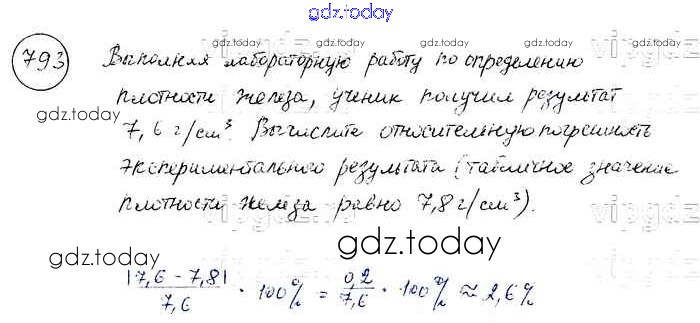 gdz.today
793 Выполняя лабораторную работу по определению
gdz.today
плотности железа, ученик получил результат
gdz.today
7,6 г/см³. Вычислите относительную погрешность
экспериментального результата (табличное значение
плотности железа равно 7,8 г/см³).
gdz.today
gdz.today
|7,6 - 7,8| / 7,6 · 100% = 0,2 / 7,6 · 100% ≈ 2,6%
gdz.today